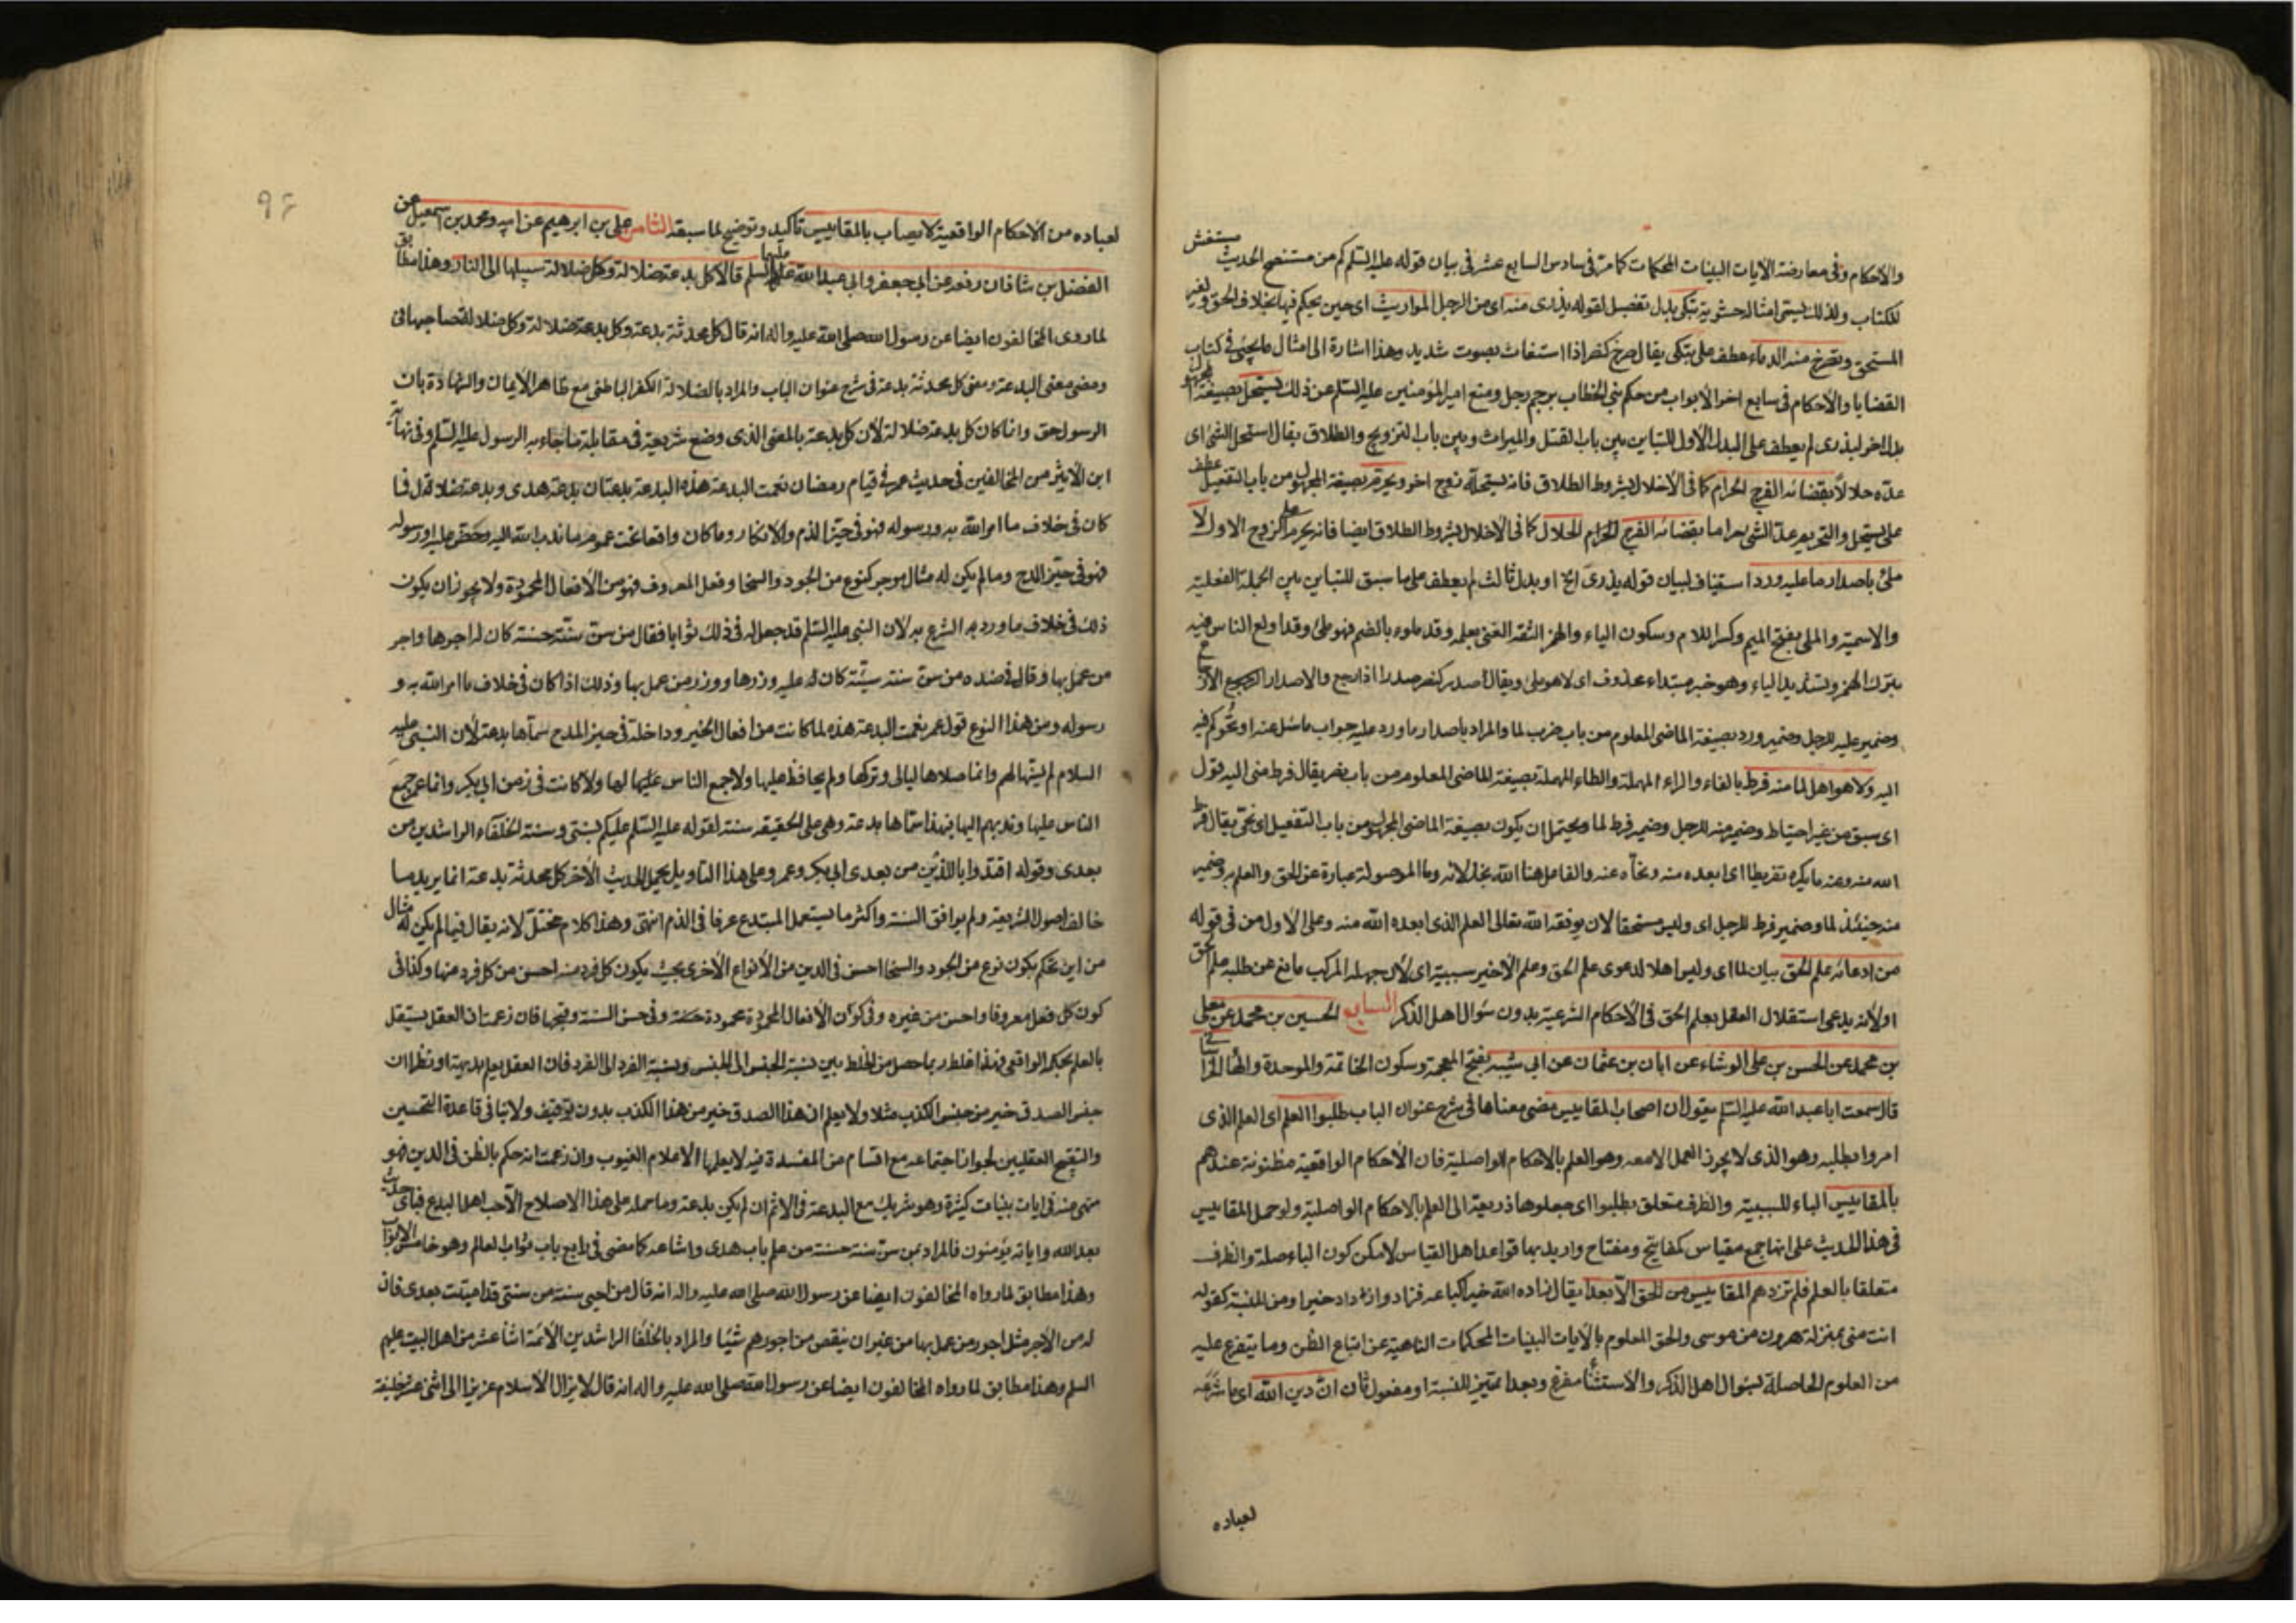 والاحكام وفى معارضة الآيات البينات المحكمات كما مرّ فى سادس السابع عشر فى بيان قوله عليه السّلم كم من مستنصح للحديث مستغش
للكتاب ولذلك يسمى امثاله حشوية تبكى بدل تفصيل لقوله يذرى منه اى من الرجل المواريث اى حين يحكم فيها بخلاف الحق ولغير
المستحق وتصرخ منه الدماء عطف على تبكى يقال صرخ كنصر اذا استغاث بصوت شديد وهذا اشارة الى امثال ما يجئ فى كتاب
القضايا والاحكام فى سابع اخر الأبواب من حكم بنى الخطاب برجم رجل ومنع امير المؤمنين عليه السّلم عن ذلك يستحل بصيغة المجهول
بدل اخر ليذرى لم يعطف على البدل الأول للتباين بين باب القتل والميراث وبين باب التزويج والطلاق يقال استحل الشئ اى
عدّه حلالاً بقضائه الفرج الحرام كما فى الأخلال بشروط الطلاق فانه يستحله زوج اخر ويحرم بصيغة المجهول من باب التفعيل عطف
على يستحل والتحريم عدّ الشئ حراما بقضائه الفرج الحلال كما فى الاخلال بشروط الطلاق ايضا فانه يحرم على الزوج الاول لا
ملئ باصدار ما عليه ورد استيناف لبيان قوله يذرى الخ او بدل ثالث لم يعطف على ما سبق للتباين بين الجملة الفعلية
والاسمية والملئ بفتح الميم وكسر اللام وسكون الياء والهمز الثقة الغنى بعلمه وقد ملوء بالضم فهو ملئ وقد اولع الناس فيه
بترك الهمز وتشديد الياء وهو خبر مبتداء محذوف اى لا هو ملئ ويقال اصدر كنصر صدرا اذا رجع والاصدار الارجاع
وضمير عليه للرجل وضمير ورد بصيغة الماضى المعلوم من باب ضرب لما والمراد باصدار ما ورد عليه جواب ما سئل عنه او تحوكم فيه
اليه ولا هو اهل لما منه فرط بالفاء والراء المهملة والطاء المهملة بصيغة الماضى المعلوم من باب نصر يقال فرط منى اليه قول
اى سبق من غير احتياط وضمير منه للرجل وضمير فرط لما ويحتمل ان يكون بصيغة الماضى المجهول من باب التفعيل اى نحّى يقال فرط
الله منه وعنه ما يكره تفريطا اى ابعده منه ونحّاه عنه والفاعل هنا الله بخذلانه وما الموصولة عبارة عن الحق والعلم به وضمير
منه حينئذ لما وضمير فرط للرجل اى وليس مستحقا لان يوفقه الله تعالى العلم الذى ابعده الله منه وعلى الأول من فى قوله
من ادعائه علم الحق بيان لما اى وليس اهلا لدعوى علم الحق وعلى الأخير سببية اى لأن جهله المركب مانع عن طلبه علم الحق
او لأنه يدعى استقلال العقل بعلم الحق فى الأحكام الشرعية بدون سؤال اهل الذكر السابع الحسين بن محمد عن معلى
بن محمد عن الحسن بن على الوشاء عن ابان بن عثمان عن ابى شيبة بفتح المعجمة وسكون الخاتمة والموحدة والهاء الخراسانى
قال سمعت ابا عبد الله عليه السّلم يقول ان اصحاب المقاييس مضى معناها فى شرح عنوان الباب طلبوا العلم اى العلم الذى
امروا بطلبه وهو الذى لا يجوز العمل الا معه وهو العلم بالاحكام الواصلية فان الأحكام الواقعية مظنونة عندهم
بالمقاييس الباء للسببية والظرف متعلق بطلبوا اى جعلوها ذريعة الى العلم بالاحكام الواصلية ولو حمل المقاييس
فى هذا الحديث على انها جمع مقياس كمفاتيح ومفتاح واريد بها قواعد اهل القياس لأمكن كون الباء صلة والظرف
متعلقا بالعلم فلم تزدهم المقاييس من الحق الا بعدا يقال زاده الله خيرا كباعه فزاد وازداد خيرا ومن للنسبة كقوله
انت منى بمنزلة هرون من موسى والحق المعلوم بالآيات البينات المحكمات الناهية عن اتباع الظن وما يتفرع عليه
من العلوم الحاصلة بسؤال اهل الذكر والاستثنأ مفرغ وبعدا تمييز للنسبة او مفعول ثان انّ دين الله اى ما شرّعه
لعباده
٩٤
لعباده من الأحكام الواقعية لا يصاب بالمقاييس تأكيد وتوضيح لما سبقه الثامن على بن ابرهيم عن ابيه ومحمد بن اسمعيل عن
الفضل بن شاذان رفعه عن ابى جعفر وابى عبد الله عليهما السلم قالا كل بدعة ضلالة وكل ضلالة سبيلها الى النار وهذا مطابق
لما روى المخالفون ايضا عن رسول الله صلى الله عليه واله انه قال كل محدثة بدعة وكل بدعة ضلالة وكل ضلالة صاحبها فى
ومضى معنى البدعة ومعنى كل محدثة بدعة فى شرح عنوان الباب والمراد بالضلالة الكفر الباطنى مع ظاهر الأيمان والشهادة بان
الرسول حق وانما كان كل بدعة ضلالة لأن كل بدعة بالمعنى الذى وضع شريعة فى مقابلة ما جاء به الرسول عليه السّلم وفى نهاية
ابن الأثير من المخالفين فى حديث عمر فى قيام رمضان نعمت البدعة هذه البدعة بدعتان بدعة هدى وبدعة ضلالة فما
كان فى خلاف ما امر الله به ورسوله فهو فى حيّز الذم والانكار وما كان واقعا تحت عموم ما ندب الله اليه وحضّ عليه او رسوله
فهو فى حيّز المدح وما لم يكن له مثال موجود كنوع من الجود والسخا وفعل المعروف فهو من الأفعال المحمودة ولا يجوز ان يكون
ذلك فى خلاف ما ورد به الشرع به لان النبى عليه السّلم قد جعل له فى ذلك ثوابا فقال من سنّ سنّة حسنة كان له اجرها واجر
من عمل بها وقال فى ضده من سنّ سنة سيّئة كان عليه وزرها ووزر من عمل بها وذلك اذا كان فى خلاف ما امر الله به و
رسوله ومن هذا النوع قول عمر نعمت البدعة هذه لما كانت من افعال الخير وداخلة فى حيز المدح سمّاها بدعة لأن النبى عليه
السلام لم يسنها لهم وانما صلاها ليالى وتركها ولم يحافظ عليها ولا جمع الناس عليها لها ولا كانت فى زمن ابى بكر وانما عمر جمع
الناس عليها وندبهم اليها فبهذا سمّاها بدعة وهى على الحقيقة سنة لقوله عليه السّلم عليكم بسنتى وسنة الخلفاء الراشدين من
بعدى وقوله اقتدوا باللذين من بعدى ابى بكر وعمر وعلى هذا التاويل يحمل الحديث الأخر كل محدثة بدعة انما يريد ما
خالف اصول الشريعة ولم يوافق السنة واكثر ما يستعمل المبتدع عرفا فى الذم انتهى وهذا كلام مختلّ لانه يقال فيما لم يكن له مثال
من اين تحكم بكون نوع من الجود والسخا احسن فى الدين من الأنواع الأخرى بحيث يكون كل فرد منه احسن من كل فرد منها وكذا فى
كون كل فعل معروفا واحسن من غيره وفى كون الأفعال المحمودة محمودة حسنة وفى حسن السنة وقبحها فان زعمت ان العقل يستقل
بالعلم بحكم الواقعى فهذا غلط ربما حصل من الخلط بين نسبة الجنس الى الجنس ونسبة الفرد الى الفرد فان العقل يعلم بديهة او نظرا ان
جنس الصدق خير من جنس الكذب مثلا ولا يعلم ان هذا الصدق خير من هذا الكذب بدون توقيف ولا ينافى قاعدة التحسين
والتقبيح العقليين لجواز اجتماعه مع اقسام من المفسدة فيه لا يعلمها الا علام الغيوب وان زعمت انه حكم بالظن فى الدين فهو
منهى عنه فى ايات بينات كثيرة وهو شريك مع البدعة فى الاثم ان لم يكن بدعة وما حمله على هذا الاصلاح الا حب اهل البدع فباى حديث
بعد الله واياته يؤمنون فالمراد بمن سنّ سنة حسنة من علم باب هدى واشاعه كما مضى فى رابع باب ثواب العالم وهو خامس الابواب
وهذا مطابق لما رواه المخالفون ايضا عن رسول الله صلى الله عليه واله انه قال من احيى سنة من سنتى قد اميتت بعدى فان
له من الأجر مثل اجور من عمل بها من غير ان ينقص من اجورهم شيئا والمراد بالخلفا الراشدين الأئمة اثنا عشر من اهل البيت عليهم
السلم وهذا مطابق لما رواه المخالفون ايضا عن رسول الله صلى الله عليه واله انه قال لا يزال الاسلام عزيزا الى اثنى عشر خليفة